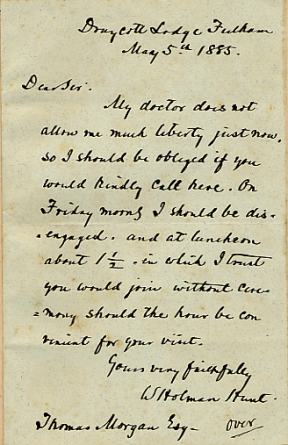 Draycott Lodge Fulham
May 5th 1885.
Dear Sir.
My doctor does not
allow me much liberty just now,
so I should be obliged if you
would kindly call here. On
Friday morng I should be dis-
-engaged. and at luncheon
about 1 1/2 . in which I trust
you would join without cere-
=mony should the hour be con
venient for your visit.
Yours very faithfully
W Holman Hunt.
Thomas Morgan Esq - over